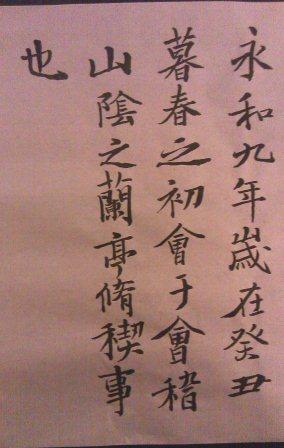 永和九年歲在癸丑
暮春之初會于會稽
山陰之蘭亭脩稧事
也